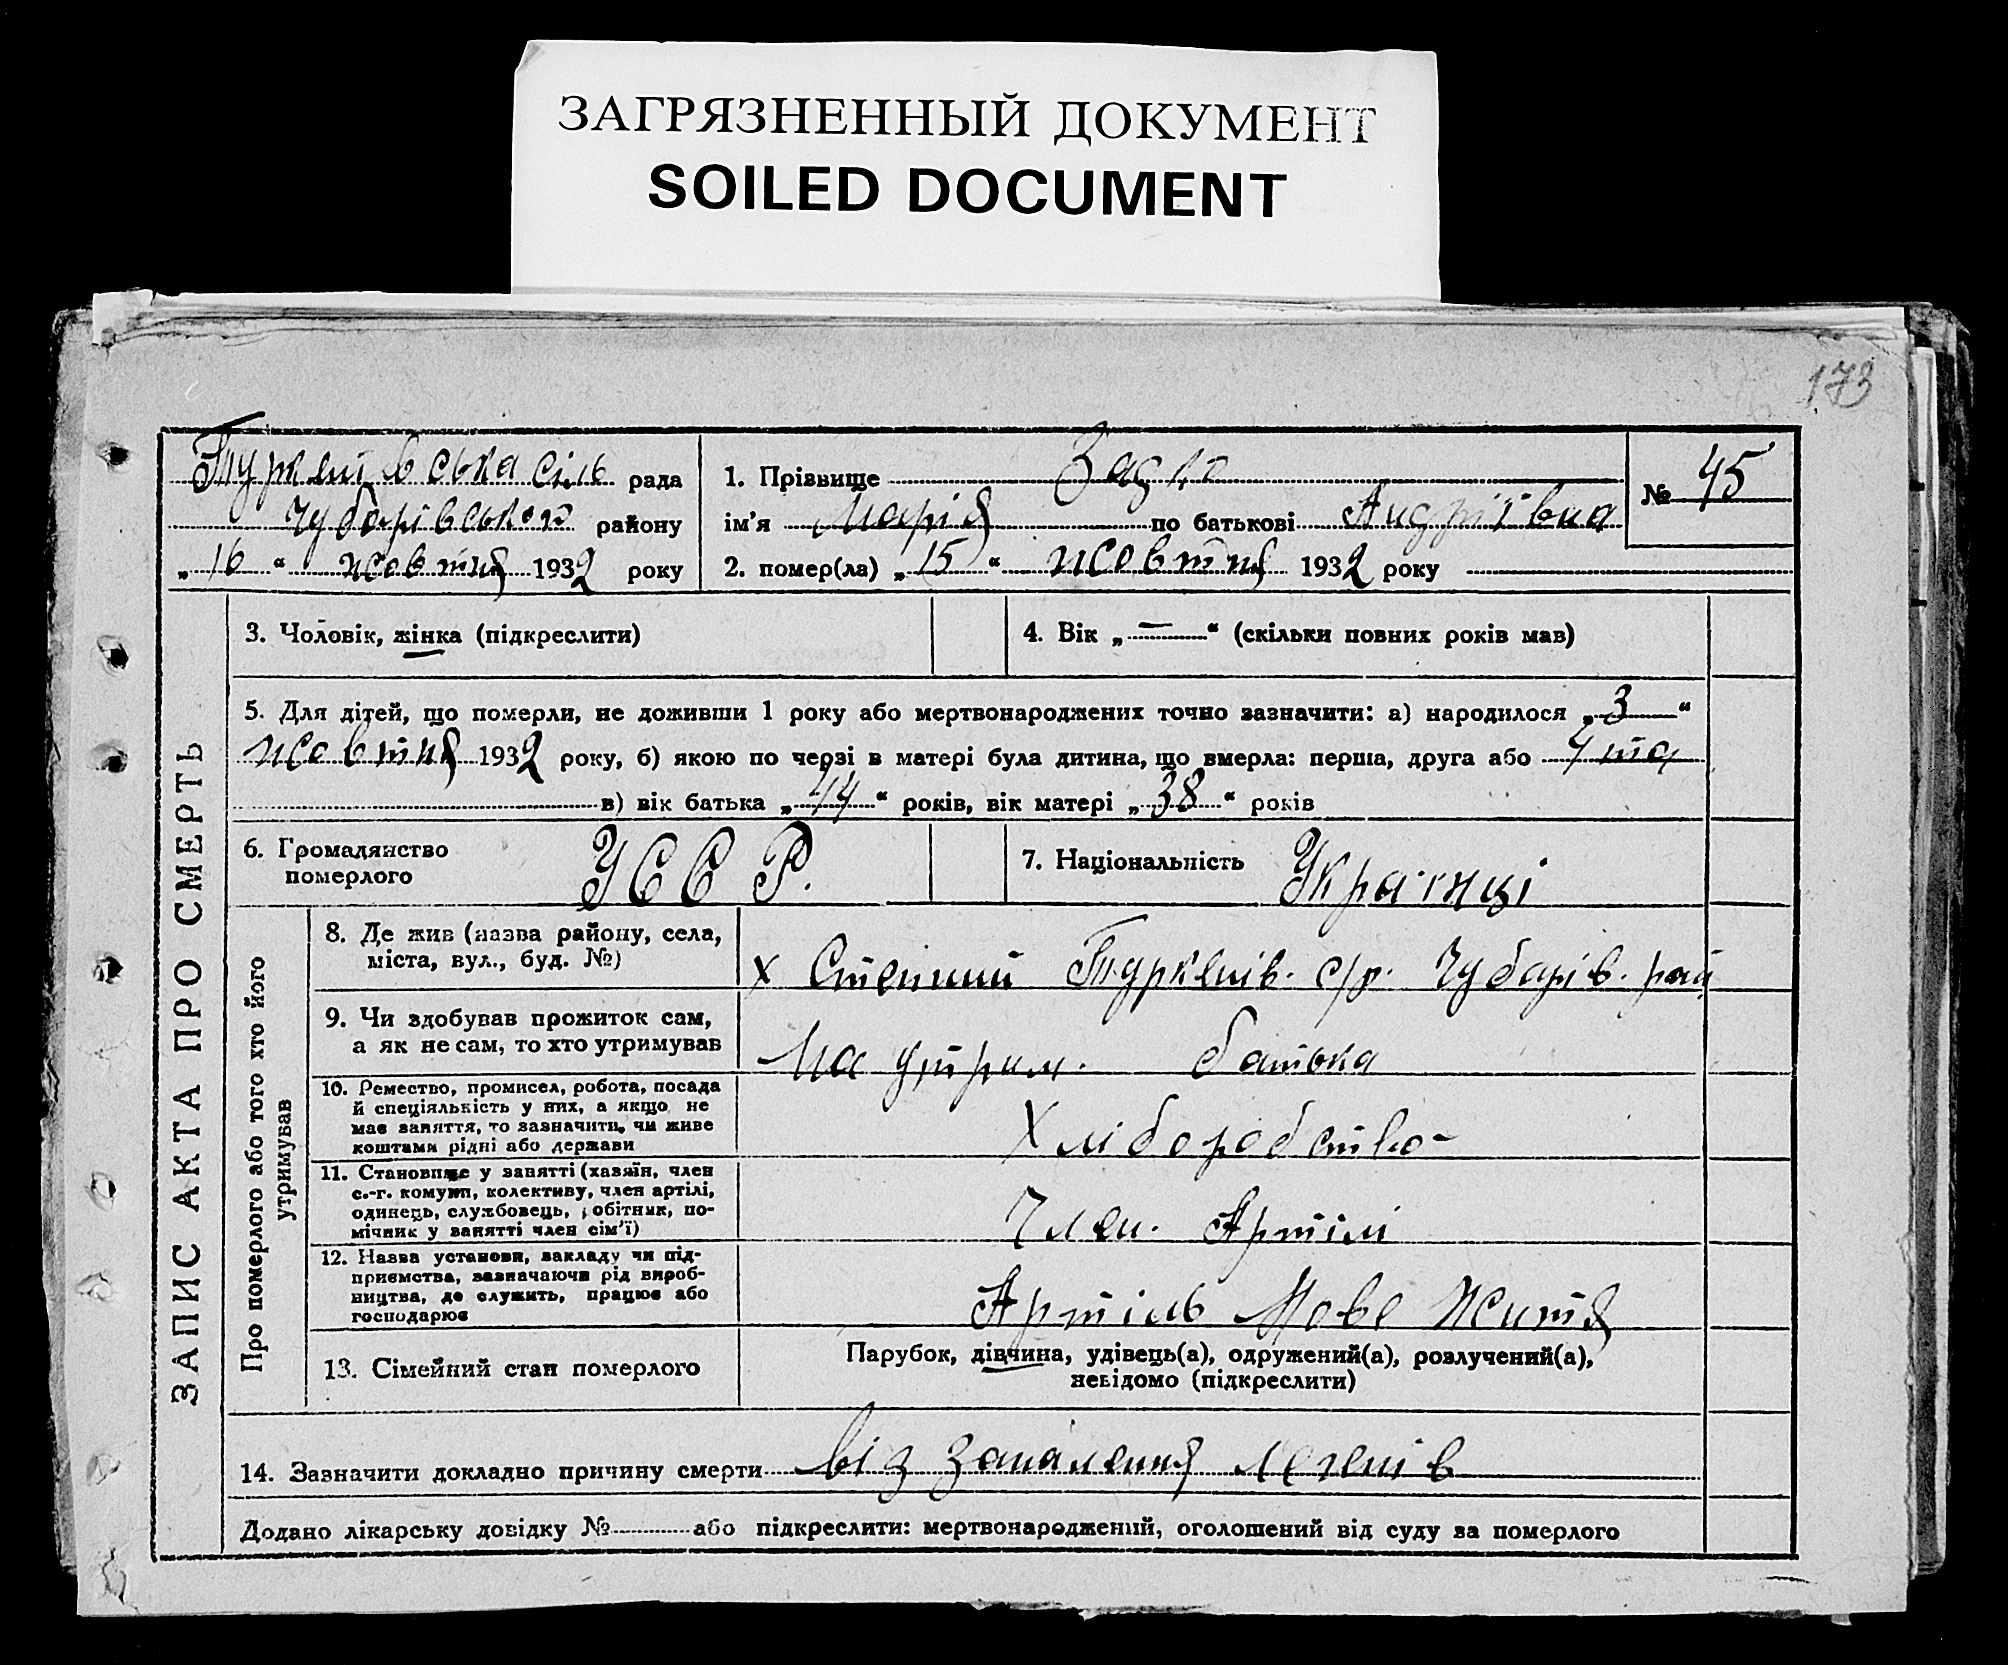 ЗАГРЯЗНЕННЫЙ ДОКУМЕНТ
SOILED DOCUMENT
173
Туркенівська сіль рада
Чубарівського району
„16“ жовтня 1932 року
1. Прізвище Задко
ім'я Марія по батькові Андріївна
2. помер(ла) „15“ жовтня 1932 року
№ 45
ЗАПИС АКТА ПРО СМЕРТЬ
3. Чоловік, жінка (підкреслити)
4. Вік „—“ (скільки повних років мав)
5. Для дітей, що померли, не доживши 1 року або мертвонароджених точно зазначити: а) народилося „3“
жовтня 1932 року, б) якою по черзі в матері була дитина, що вмерла: перша, друга або 4 та
в) вік батька „44“ років, вік матері „38“ років
6. Громадянство
померлого
УССР.
7. Національність Українці
Про померлого або того хто його
утримував
8. Де жив (назва району, села,
міста, вул., буд. №)
х Степний Туркенів. с/р. Чубарів. рай
9. Чи здобував прожиток сам,
а як не сам, то хто утримував
На утрим. батька
10. Ремество, промисел, робота, посада
й спеціяльність у них, а якщо не
має заняття, то зазначити, чи живе
коштами рідні або держави
Хліборобство
11. Становище у занятті (хазяїн, член
с.-г. комуни, колективу, член артілі,
одинець, службовець, робітник, по-
мічник у занятті член сім'ї)
Член. Артілі
12. Назва установи, закладу чи під-
приємства, зазначаючи рід вироб-
ництва, де служить, працює або
господарює
Артіль Нове Життя
13. Сімейний стан померлого
Парубок, дівчина, удівець(а), одружений(а), розлучений(а),
невідомо (підкреслити)
14. Зазначити докладно причину смерти від запалення легенів
Додано лікарську довідку № або підкреслити: мертвонароджений, оголошений від суду за померлого